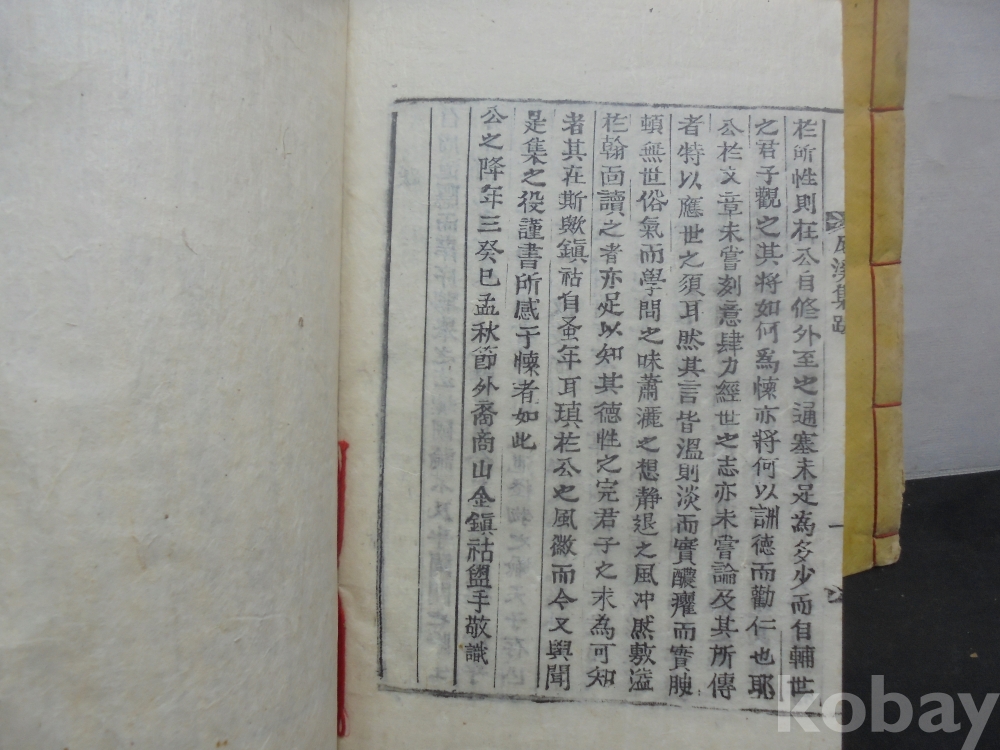 扵所性則在公自修外至之通塞未足為多少而自輔世
之君子觀之其將如何為悚亦將何以訓德而勸仁也耶
公扵文章未嘗刻意肆力經世之志亦未嘗論及其所傳
者特以應世之須耳然其言皆溫則淡而實醲癯而實腴
頓無世俗氣而學問之味蕭灑之想靜退之風冲然敷溢
扵翰面讀之者亦足以知其德性之完君子之求為可知
者其在斯歟鎭祜自蚤年耳瑱扵公之風徽而今又與聞
是集之役謹書所感于悚者如此
公之降年三癸巳孟秋節外裔商山金鎭祜盥手敬識
溪集跋
一
kobay